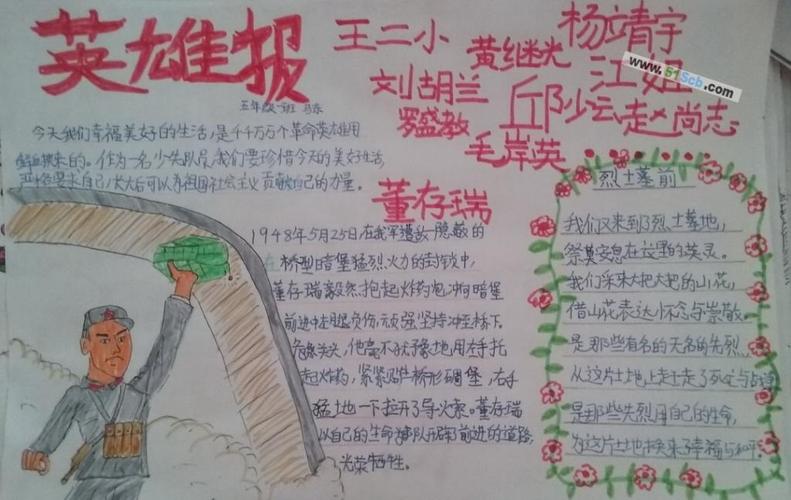 英雄报
五年级一班 马东
王二小
黄继光
杨靖宇
刘胡兰
江姐
罗盛教
邱少云
赵尚志
毛岸英
www.51Scb.com
今天我们幸福美好的生活,是千千万万个革命英雄用
鲜血换来的。作为一名少先队员,我们要珍惜今天的美好生活,
严格要求自己,长大后可以为祖国社会主义贡献自己的力量。
董存瑞
1948年5月25日,在我军遭敌隐蔽的
桥型暗堡猛烈火力的封锁中,
董存瑞毅然抱起炸药包冲向暗堡
前进中左腿负伤,顽强坚持冲至桥下。
危急关头,他毫不犹豫地用左手托
起炸药,紧紧贴住桥形碉堡,右手
猛地一下拉开了导火索。董存瑞
以自己的生命为部队开辟了前进的道路,
光荣牺牲。
烈士墓前
我们又来到烈士墓地,
祭奠安息在这里的英灵。
我们采来大把大把的山花,
借山花表达怀念与崇敬。
是那些有名的无名的先烈,
从这片土地上走
是那些先烈用自己的生命,
为这片土地换来了幸福与和平。